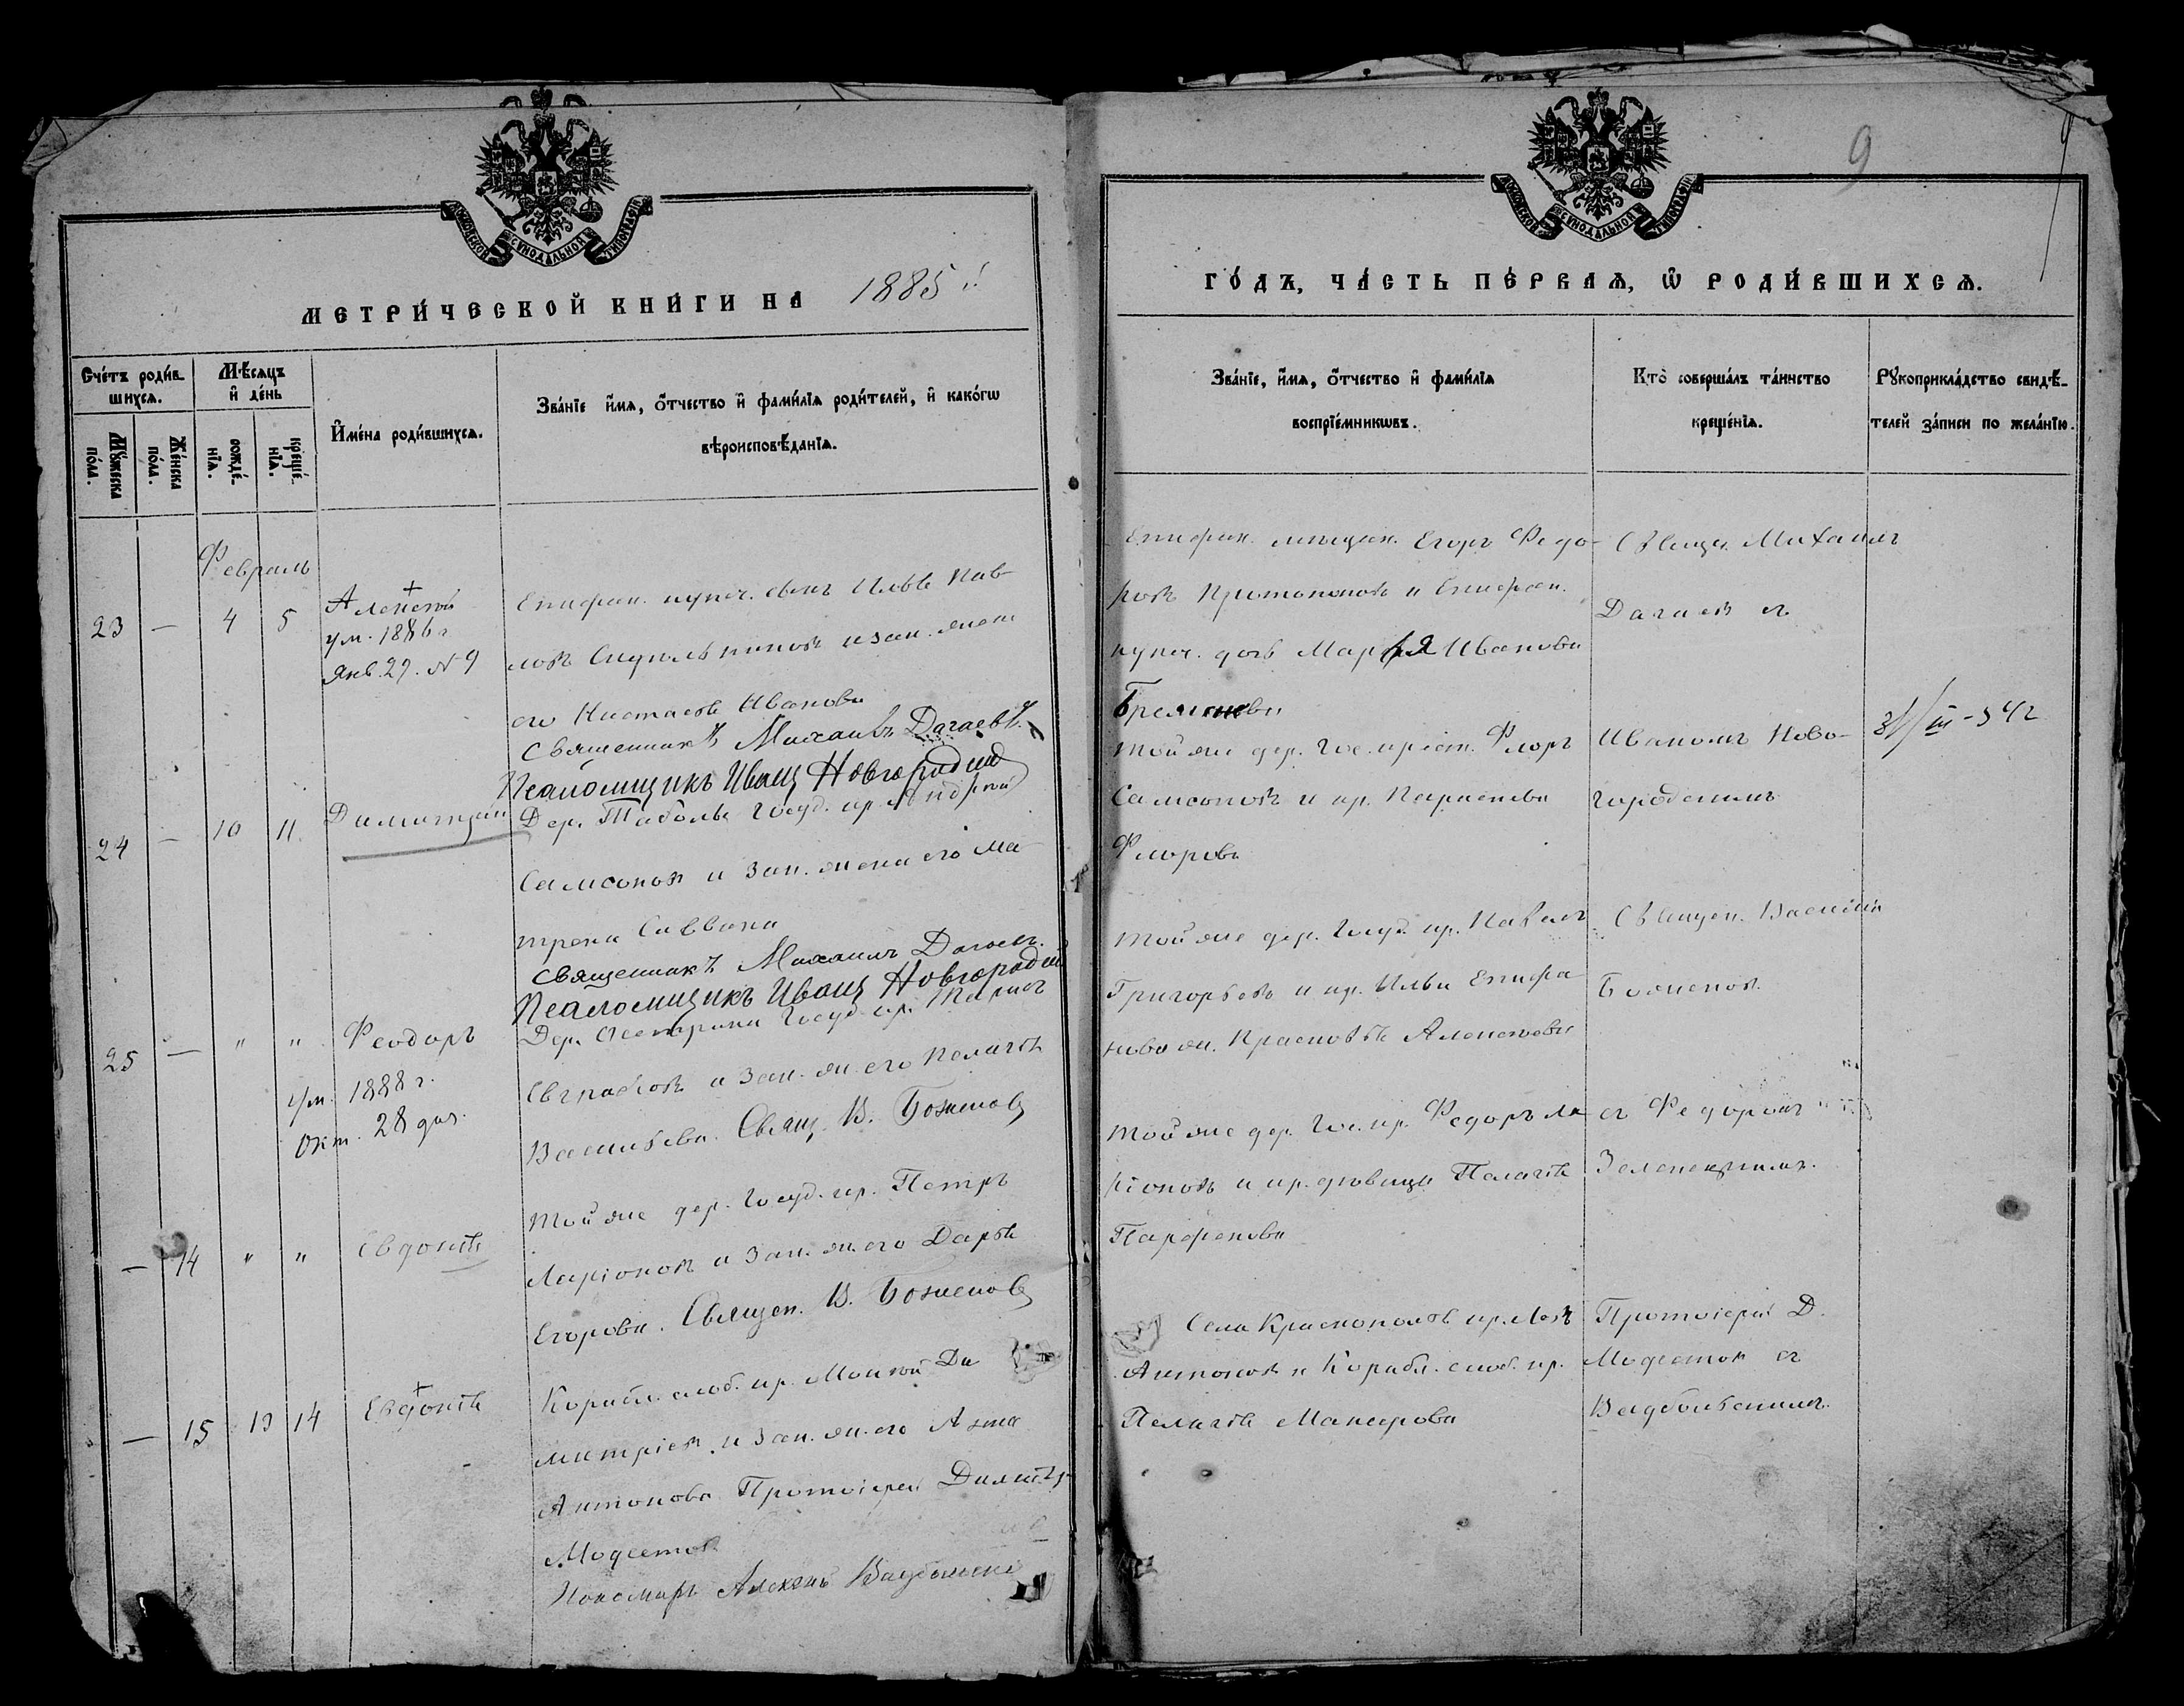 МОСКОВСКОЙ СѴНОДАЛЬНОЙ ТИПОГРАФІИ
МЕТРИ́ЧЕСКОЙ КНИ́ГИ НА 1885 г.
Сче́тъ роди́вшихсѧ.
Мꙋ́жеска по́ла.
Же́нска по́ла.
Мѣ́сѧцъ и҆ де́нь
рожде́нїѧ.
креще́нїѧ.
И҆мена̀ роди́вшихсѧ.
Зва́нїе и҆́мѧ, ѻ҆́тчество и҆ фами́лїѧ роди́телей, и҆ како́гѡ
вѣроисповѣ́данїѧ.
Февраль
23 — 4 5 Алексѣй
ум. 1886 г
Янв. 29. № 9
Епифан. купеч. сынъ Илья Пав-
ловъ и зак. жена
его Настасья Иванова
Священникъ Михаилъ Дагаевъ.
Псаломщикъ Иванъ Новгородскій
24 — 10 11. Димитрій
Дер. Таболы Госуд. кр. Андрей
Самсоновъ и зак. жена его Ма-
трона Саввина
Священникъ Михаилъ Дагаевъ.
Псаломщикъ Иванъ Новгородскій
25 — " " Феодоръ
ум. 1888 г.
Окт. 28 дня.
Дер. Госуд. кр.
Евграфовъ и зак. ж. его Пелагія
Васильева. Свящ. В. Боженовъ
— 14 " " Евдокія
Той же дер. Госуд. кр. Петръ
Ларіоновъ и зак. ж. его Дарья
Егорова. Священ. В. Боженовъ
— 15 13 14 Евдокія
Карабл. слоб. кр. Мокей Ди
митріевъ и зак. ж. его Анна
Антонова Протоіерей Димитр
Модестовъ
Пономарь Алексѣй Вадбольскій
9
МОСКОВСКОЙ СѴНОДАЛЬНОЙ ТИПОГРАФІИ
ГО́ДЪ, ЧА́СТЬ ПЕ́РВАѦ, Ѽ РОДИ́ВШИХСѦ.
Зва́нїе, и҆́мѧ, ѻ҆́тчество и҆ фами́лїѧ
воспрїе́мникѡвъ.
Кто̀ соверша́лъ та́инство
креще́нїѧ.
Рꙋкоприкла́дство свидѣ́-
телей за́писи по жела́нїю.
Епифан. мѣщан. Егоръ Федо-
ровъ Протопоповъ и Епифан.
купеч. дочь Марія Иванова
Свящ. Михаилъ
Дагаевъ съ
Той же дер. Гос. крест. Флоръ
Самсоновъ и кр.
Флорова
Иваномъ Ново-
городскимъ
31/III-942
Той же дер. Госуд. кр. Павелъ
Григорьевъ и кр. Ильи Епифа
нова ж. Алексѣева
Священ. Василій
Боженовъ.
Той же дер. Гос. кр. Федоръ Ла
ріоновъ и кр. дѣвица Пелагія
Парфенова
съ Федоромъ
Зеленецкимъ.
Села Краснополья кр.
Антоновъ и Карабл. слоб. кр.
Пелагія Макарова
Протоіерей Д.
Модестовъ съ
Вадбольскимъ.